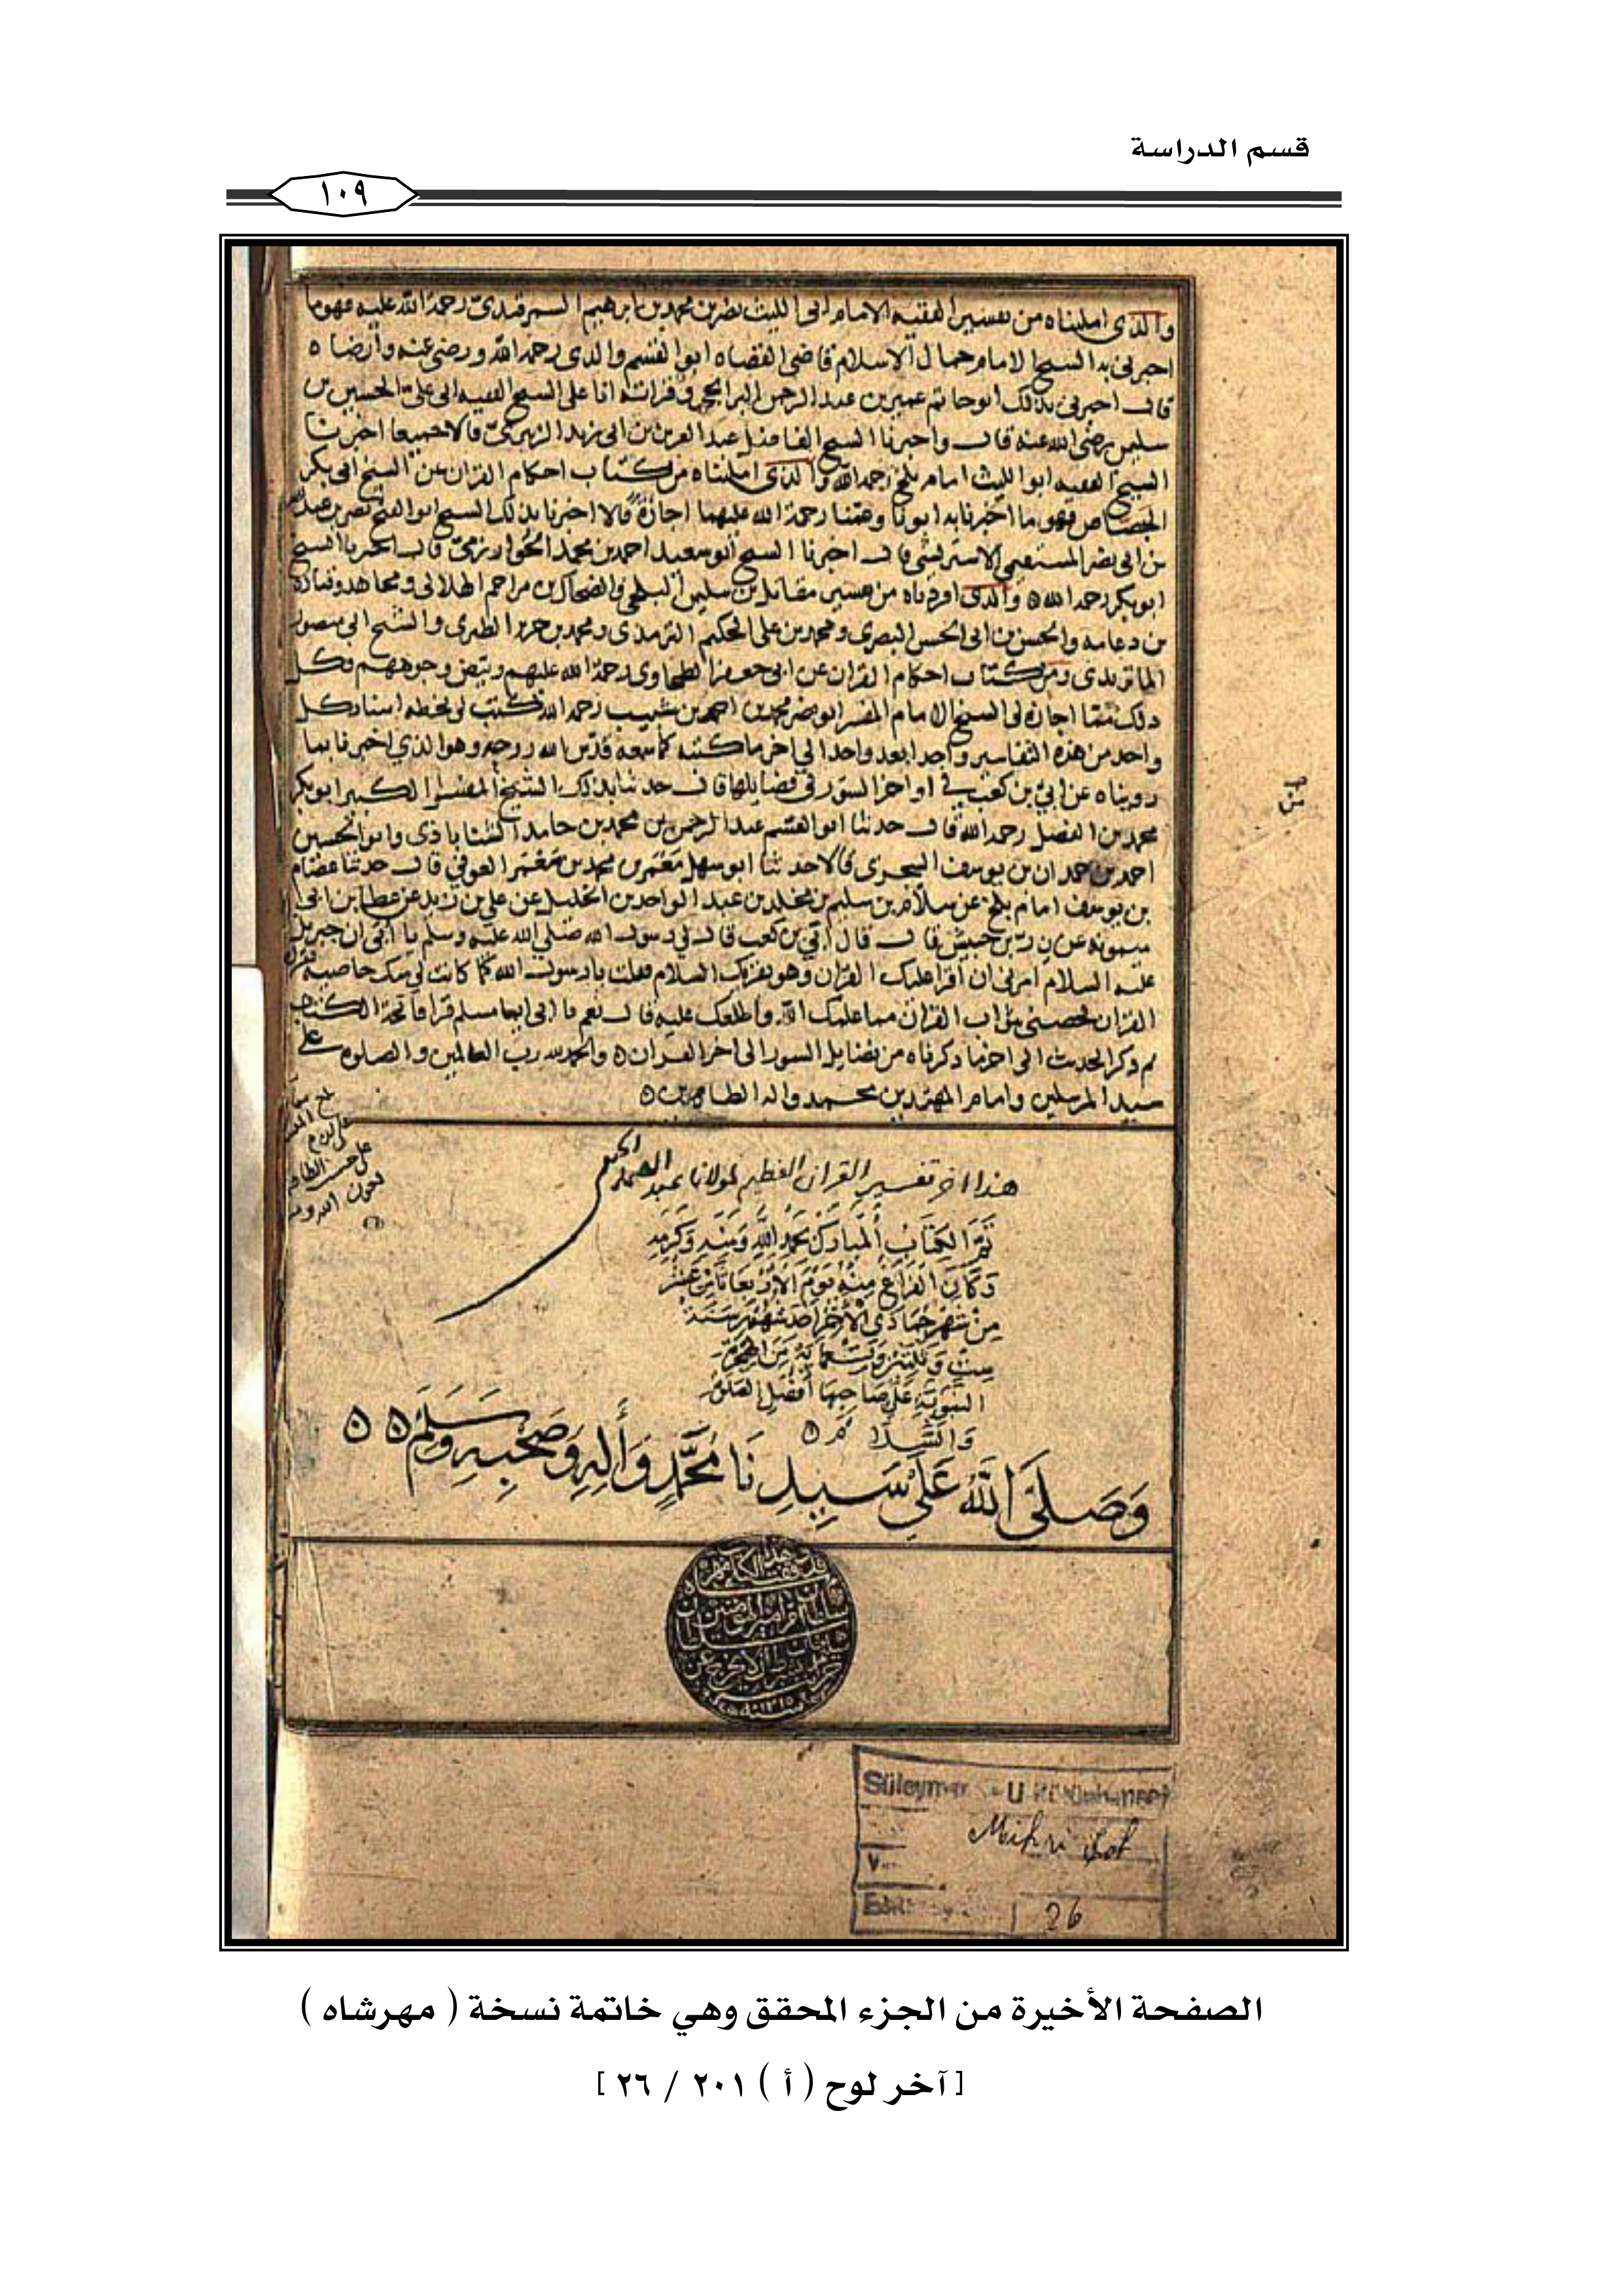 قسم الدراسة
١٠٩
والذى امليناه من تفسير الفقيه الامام ابى الليث نصر بن محمد بن ابرهيم السمرقندى رحمة الله عليه فهو ما
اخبرنى به الشيخ الامام جمال الاسلام قاضى القضاه ابو القسم والدى رحمه الله ورضى عنه وأرضاه
قال اخبرنى بذلك ابو حاتم عمير بن عبد الرحمن وقراته انا على الشيخ الفقيه ابى على الحسين بن
سليمن رضى الله عنه قال واخبرنا الشيخ عبد العزيز بن ابى يزيد قالا جميعا اخبرنا
الشيخ الفقيه ابو الليث امام بلخ رحمه الله والذى امليناه من كتاب احكام القران عن الشيخ ابى بكر
الجصاص فهو ما اخبرنا به ابونا وعمنا رحمة الله عليهما اجازة قالا اخبرنا بذلك الشيخ ابو الفتح نصر بن عبد الله
بن ابى نصر قال اخبرنا الشيخ ابو سعيد احمد بن محمد الخوارزمى قال اخبرنا الشيخ
ابو بكر رحمه الله ٥ والذى اوردناه من تفسير مقاتل بن سليمن البلخى والضحاك بن مزاحم الهلالى ومجاهد وقتاده
بن دعامه والحسن بن ابى الحسن البصرى ومحمد بن على الحكيم الترمذى ومحمد بن جرير الطبرى والشيخ ابى منصور
الماتريدى ومن كتاب احكام القران عن ابى جعفر الطحاوى رحمة الله عليهم وبيض وجوههم وكل
ذلك مما اجازه لى الشيخ الامام المفسر ابو نصر محمد بن احمد بن شبيب رحمه الله وكتب لى بخطه اسناد كل
واحد من هذه التفاسير واحدا بعد واحد الى اخر ما كتبه كما سمعه قدس الله روحه وهو الذي اخبرنا بما
رويناه عن ابي بن كعب في اواخر السور فى فضايلها قال حدثنا بذلك الشيخ المفسر الكبير ابو بكر
محمد بن الفضل رحمه الله قال حدثنا ابو القسم عبد الرحمن بن محمد بن حامد وابو الحسين
احمد بن حمدان بن يوسف السجزى قالا حدثنا ابو سهل معمر بن محمد بن معمر العوفي قال حدثنا عصام
بن يوسف امام بلخ عن سلام بن سليم بن مخلد بن عبد الواحد بن الخليل عن علي بن زيد عن عطا بن ابى
ميمونه عن زر بن حبيش قال قال ابي بن كعب قال لي رسول الله صلى الله عليه وسلم يا ابى ان جبريل
عليه السلام امرنى ان اقرا عليك القران وهو يقريك السلام فقلت يا رسول الله كما كانت لى منك خاصية
القران فخصنى بثواب القران مما علمك الله واطلعك عليه قال نعم يا ابى ايما مسلم قرا فاتحة الكتاب
ثم ذكر الحديث الى اخر ما ذكرناه من فضايل السور الى اخر القران ٥ والحمد لله رب العالمين والصلوه على
سيد المرسلين وامام المهتدين محمد واله الطاهرين ٥
هذا اخر تفسير القران العظيم لمولانا عبد الصمد الحنفى
تم الكتاب المبارك بحمد الله ومنه وكرمه
وكان الفراغ منه يوم الأربعا ثامن عشر
من شهر جمادى الأخر احد شهور سنة
ست وثلثين وتسعمايه من الهجره
النبوية على صاحبها أفضل الصلوة
والسلام ٥
وصلى الله على سيدنا محمد وأله وصحبه وسلم ٥ ٥
Süleymaniye U Kütüphanesi
Mihrişah
26
الصفحة الأخيرة من الجزء المحقق وهي خاتمة نسخة ( مهرشاه )
[ آخر لوح ( أ ) ٢٠١ / ٢٦ ]